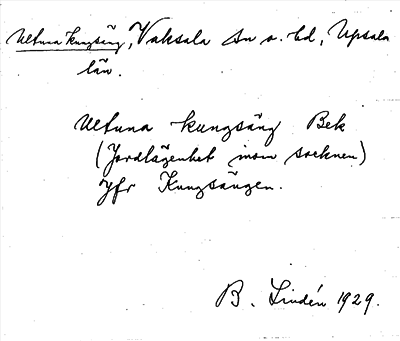 Ultuna kungsäng, Vaksala sn o. hd, Upsala
län.
Ultuna kungsäng Bek
(Jordlägenhet inom socknen)
Jfr Kungsängen.
B. Lindén 1929.